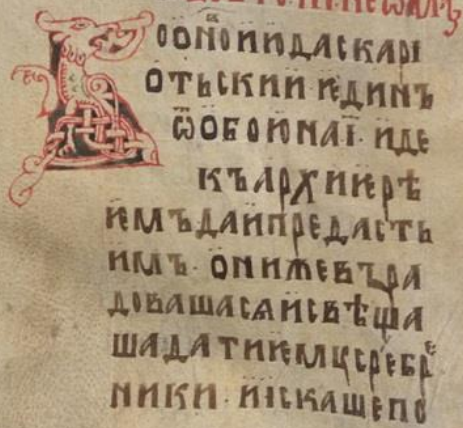 Воонѡиюдаскарі
отьскииѥдинъ
ѿобоюнаі· иде
къархиѥрѣ
ѥмъдаипредасть
имъ· онижевъꙁра
довашасѧисвѣща
шадатиѥмꙋсребрⷷ
ники· иискашепо